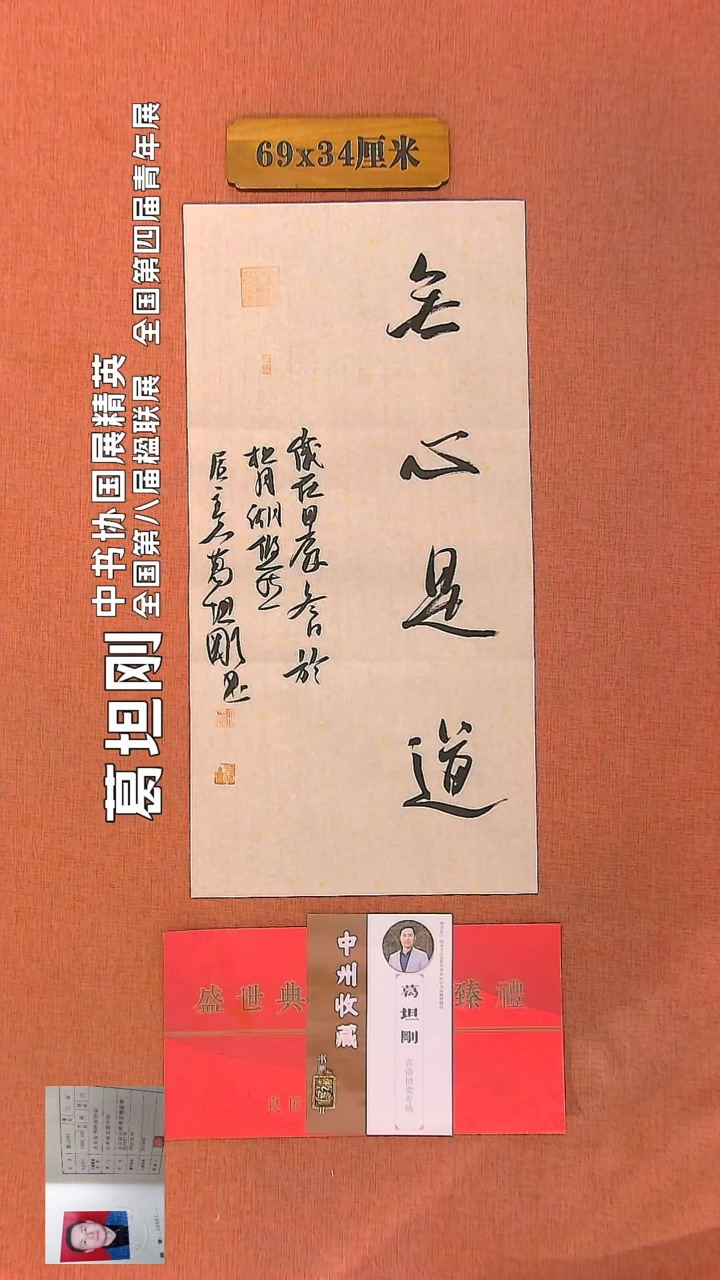 69x34厘米
无心是道
岁在甲辰冬日於
松月湖悠然
居主人葛坦剛書
葛坦刚
中书协国展精英
全国第八届楹联展 全国第四届青年展
盛世典
臻禮
中州收藏
葛坦剛